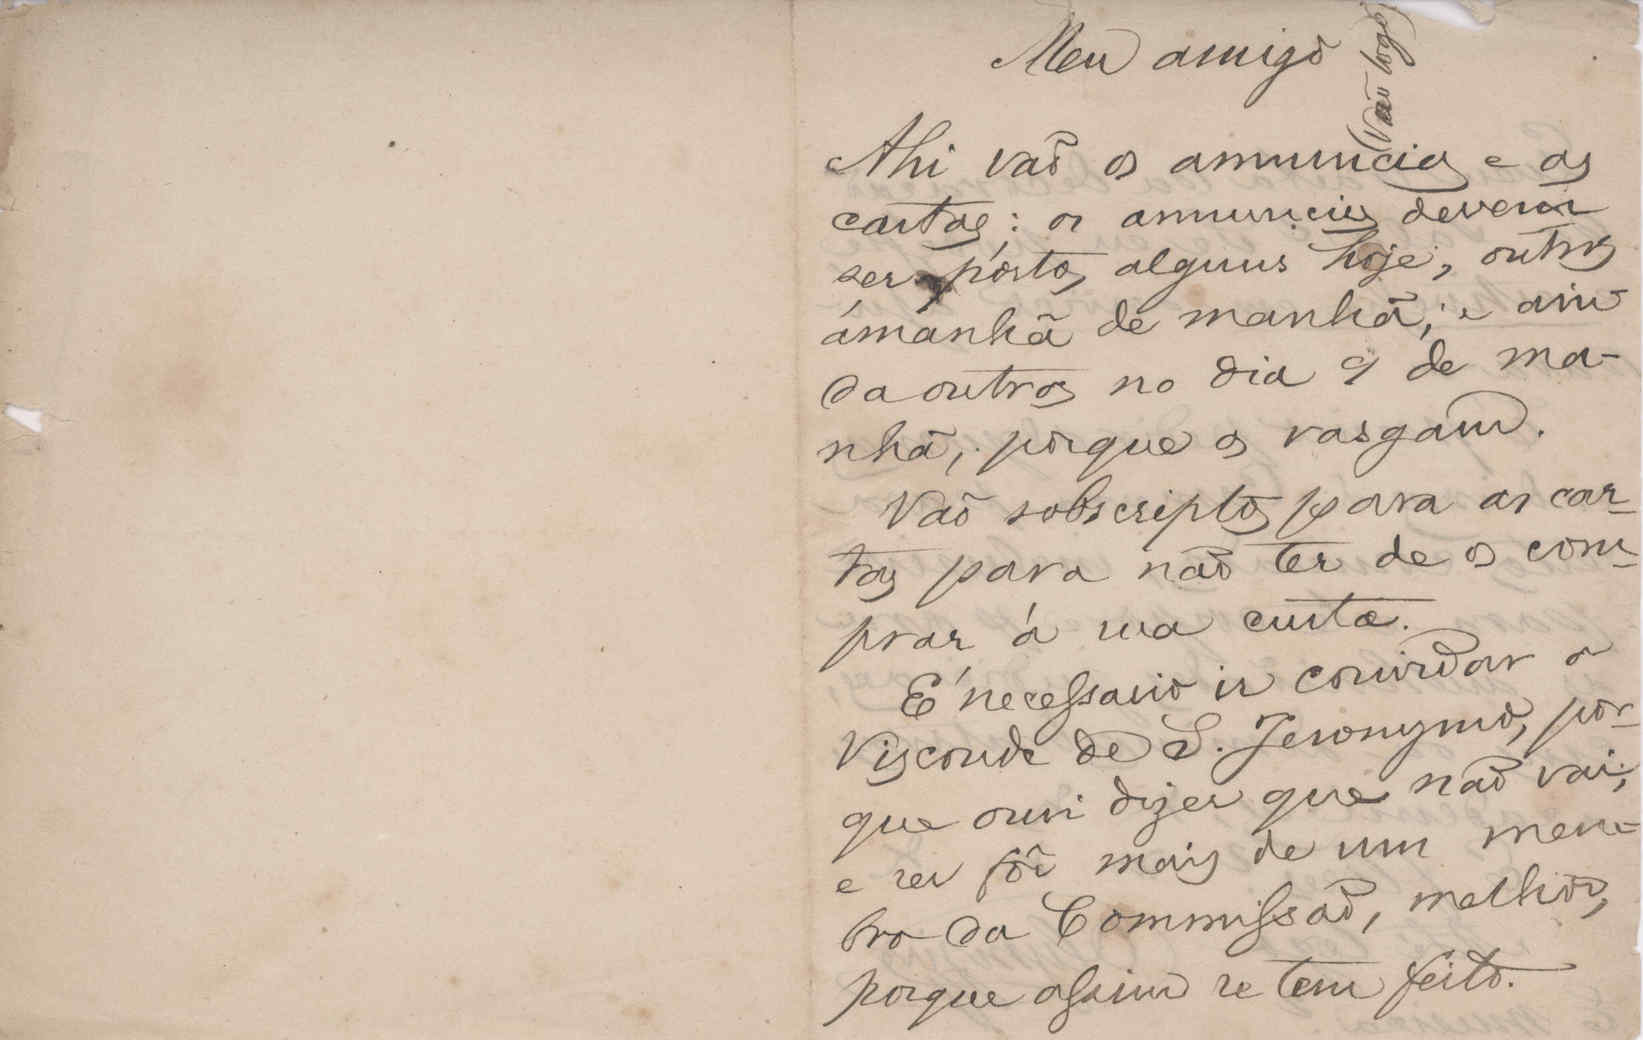 Meu amigo
(Vaõ logo)
Ahi vaõ os annuncios e as
cartas; os annuncios devem
ser postos, alguns hoje, outros
ámanhã de manhã, e ain-
da outros no dia 9 de ma-
nhã, porque os rasgam.
Vaõ sobscriptos para as car-
tas para naõ ter de os com-
prar á sua custa.
É necessario ir convidar o
Visconde de S. Jeronymo, por-
que ouvi dizer que naõ vai;
e se fôr mais de um mem-
bro da Commissaõ, melhor,
porque assim se tem feito.